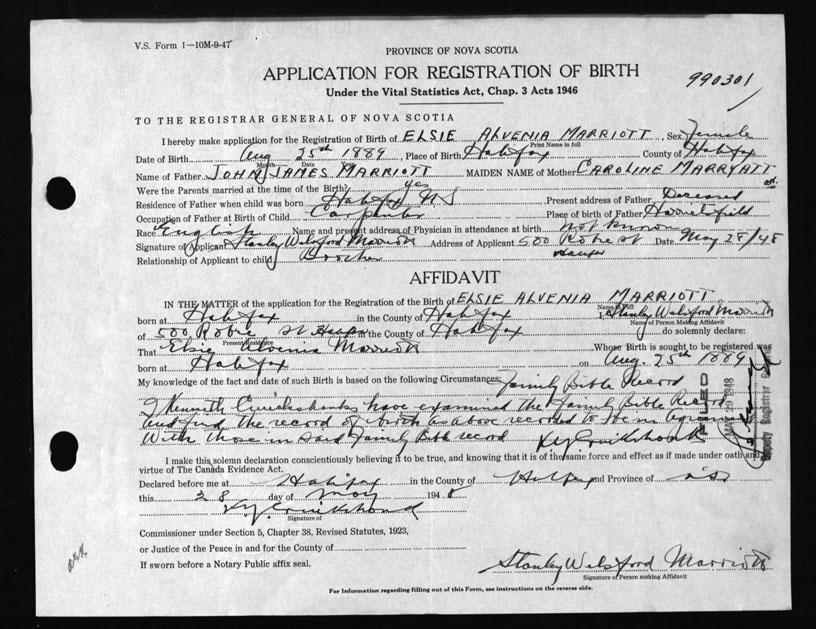 V.S. Form 1—10M-9-47
PROVINCE OF NOVA SCOTIA
APPLICATION FOR REGISTRATION OF BIRTH
Under the Vital Statistics Act, Chap. 3 Acts 1946
990301
TO THE REGISTRAR GENERAL OF NOVA SCOTIA
I hereby make application for the Registration of Birth of ELSIE ALVENIA MARRIOTT, Sex Female
Print Name in full
Date of Birth Aug 25th 1889, Place of Birth Halifax County of Halifax
Month Date
Name of Father JOHN JAMES MARRIOTT MAIDEN NAME of Mother CAROLINE MARRYATT
Were the Parents married at the time of the Birth? yes
Residence of Father when child was born Halifax NS Present address of Father Deceased
Occupation of Father at Birth of Child Carpenter Place of birth of Father Harrietsfield
Race English Name and present address of Physician in attendance at birth not known
Signature of Applicant Stanley Welsford Marriott Address of Applicant 500 Robie St Date May 28/48
Relationship of Applicant to child Brother Halifax
AFFIDAVIT
IN THE MATTER of the application for the Registration of the Birth of ELSIE ALVENIA MARRIOTT
Name in Full
born at Halifax in the County of Halifax I, Stanley Welsford Marriott
Name of Person Making Affidavit
of 500 Robie St Halifax in the County of Halifax do solemnly declare:
Present Residence
That Elsie Alvenia Marriott Whose Birth is sought to be registered was
born at Halifax on Aug. 25th 1889
My knowledge of the fact and date of such Birth is based on the following Circumstances: Family Bible Record
I Kenneth Cruikshank have examined the Family Bible Record
and find the record of birth as above recorded to be in
With those in said Family Bible record
FILED
MAY 29 1948
Deputy Registrar
I make this solemn declaration conscientiously believing it to be true, and knowing that it is of the same force and effect as if made under oath and
virtue of The Canada Evidence Act.
Declared before me at Halifax in the County of Halifax and Province of NS
this 28 day of May 1948
Signature of
Commissioner under Section 5, Chapter 38, Revised Statutes, 1923,
or Justice of the Peace in and for the County of
If sworn before a Notary Public affix seal.
Stanley Welsford Marriott
Signature of Person making Affidavit
For Information regarding filling out of this Form, see instructions on the reverse side.